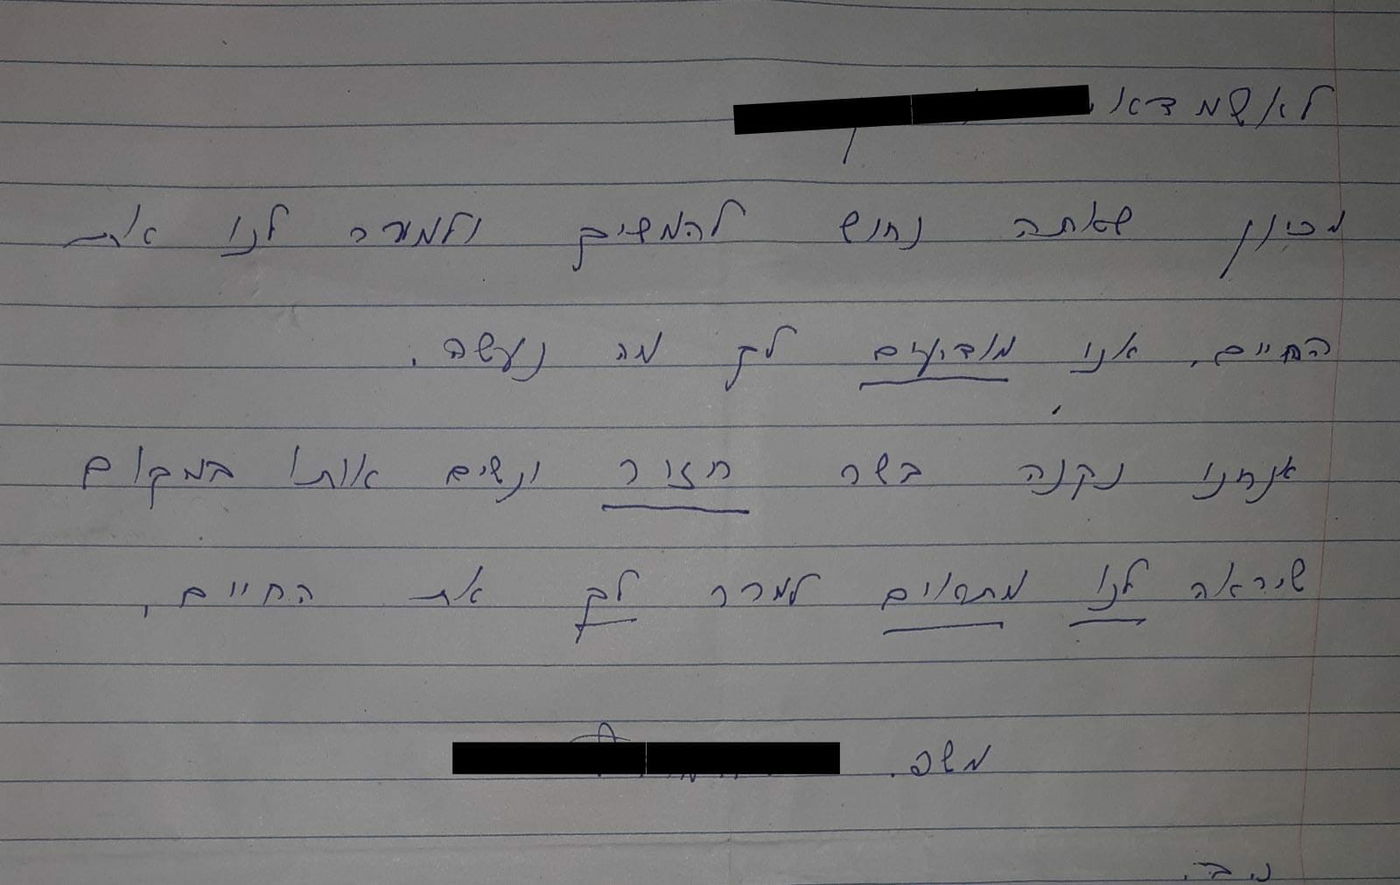 לאשמדאי
מכיוון שאתה נחוש להמשיך ולמרר לנו את
החיים, אנו מודיעים לך מה נעשה.
אנחנו נקנה בשר חזיר ונשים אותו במקום
שיראה לנו מתאים למרר לך את החיים,
משפ.
נ.ב.